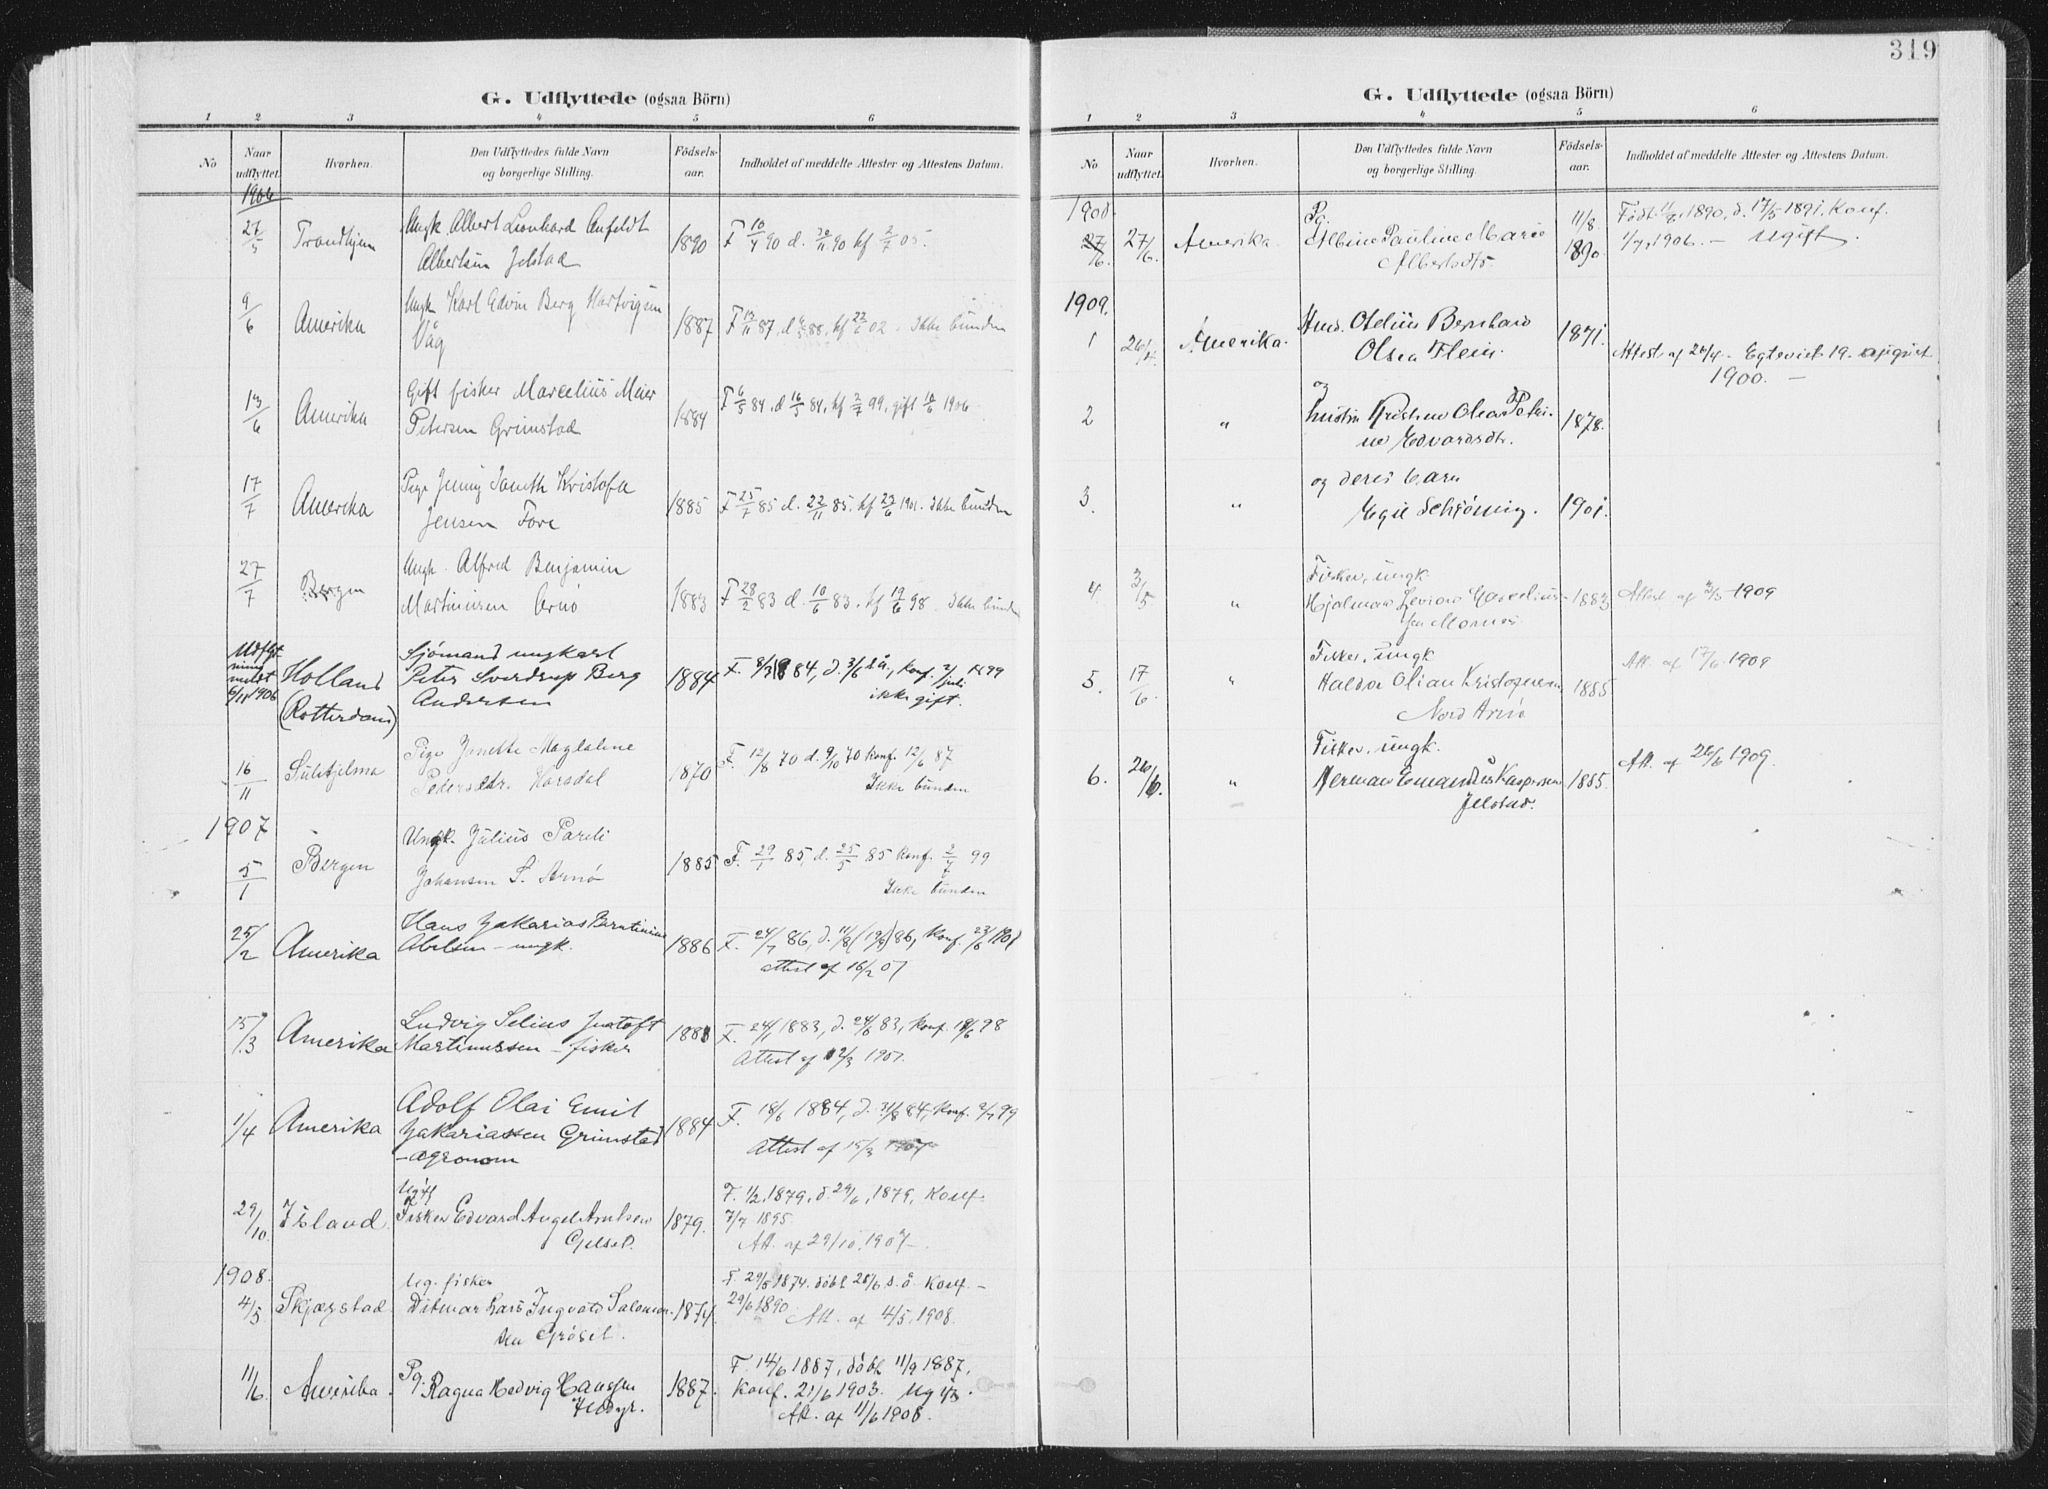 G. Udflyttede (ogsaa Börn)
1 2 3 4 5 6
No Naar udflyttet. Hvorhen. Den Udflyttedes fulde Navn og borgerlige Stilling. Fødsels- aar. Indholdet af meddelte Attester og Attestens Datum.
1906
27/5 Trondhjem Ungk Albert Leonhard Anfeldt
Albertsen Jelstad 1890 F 10/4 90 d. 30/11 90 kf 2/7 05.
9/6 Amerika Ungk Karl Edvin Berg Hartvigsen
Våg 1887 F 13/11 87, d 88, kf 22/6 02. Ikke bunden
13/6 Amerika Gift fisker Marcelius Meier
Petersen Grimstad 1884 F 6/5 84, d 16/5 84, kf 2/7 99, gift 10/6 1906
17/7 Amerika Pige Jenny Kristofa
Jensen Fore 1885 F 25/7 85 d. 22/11 85. kf 23/6 1901. Ikke bunden
27/7 Bergen Ungk. Alfred Benjamin
Martinusen Arnö 1883 F 28/2 83 d. 10/6 83. kf 19/6 98. Ikke bunden
Udflyt-
ning
meldt
6/11 1906 Holland
(Rotterdam) Sjömand ungkarl
Peter Sverdrup Berg
Andersen 1884 F. 8/3 1884, d. 3/6 s.å., konf. 2/juli 1899
ikke gift.
16/11 Sulitjelma Pige Jenette Magdalene
Pedersdtr. Horsdal 1870 F. 12/8 70 d. 9/10 70 konf. 12/6 87
Ikke bunden
1907
5/1 Bergen Ungk. Julius Pareli
Johansen S. Arnö 1885 F. 29/1 85, d. 25/5 85 konf. 2/7 99
Ikke bunden
25/2 Amerika Hans Zakarias
Abelsen - ungk. 1886 F. 24/7 86, d. 11/8 (19/9) 86, konf. 23/6 1901
attest af 16/2 07
15/3 Amerika Ludvig Selius Justoft
Martinussen - fisker 1883 F. 24/1 1883, d. 24/6 83, konf. 19/6 98
Attest af 12/3 1907.
1/4 Amerika Adolf Olai Emil
Zakariassen Grimstad
- agronom 1884 F. 18/6 1884, d. 31/8 84, konf. 2/7 99
Attest af 15/3 1907
29/10 Island Ugift
Fisker Edvard Angel Arntsen
Gjelset. 1879. F. 1/2 1879, d. 29/6, 1879, Konf.
7/7 1895.
Att. af 29/10, 1907.
1908.
4/5 Skjærstad Ug. fisker
Ditmar Lars Ingvald Salomon-
sen Gröset. 1874. F. 29/5 1874. döbt 28/6 s. å Konf. -
29/6 1890. Att. af 4/5, 1908.
11/6 Amerika Pg. Ragna Hedvig Hanssen
1887. F. 14/6 1887, döbt 11/9 1887,
Konf. 21/6 1903. Ugift.
Att. af 11/6 1908.
319
G. Udflyttede (ogsaa Börn)
1 2 3 4 5 6
No Naar udflyttet. Hvorhen. Den Udflyttedes fulde Navn og borgerlige Stilling. Fødsels- aar. Indholdet af meddelte Attester og Attestens Datum.
1908
27/6. 27/6. Amerika. Pg.
Albine Pauline Marie
Albertsdtr. 11/8. 1890 Födt. 11/8, 1890, d. 17/5 1891, Konf.
1/7, 1906. - Ugift.
1909.
1 26/4. Amerika. Snd. Otelius Bernhard
Olsen Flein. 1871. Attest af 26/4. - Egteviet 19. august
1900. -
2 " og
hustru Kristine Olea Petri-
ne Edvardsdtr. 1878.
3. " og deres barn
Egil Schjöning. 1901.
4. 3/5 " Fisker, ungk.
Hjalmar Marcelius-
sen Mornes 1883 Attest af 3/5 1909
5. 17/6. " Fisker, ungk.
Haldor Olian Kristoffersen
Nord Arnö 1885 Att. af 17/6. 1909
6. 26/6. " Fisker, ungk.
Herman Kaspersen
Jelstad. 1885. Att. af 26/6 1909.